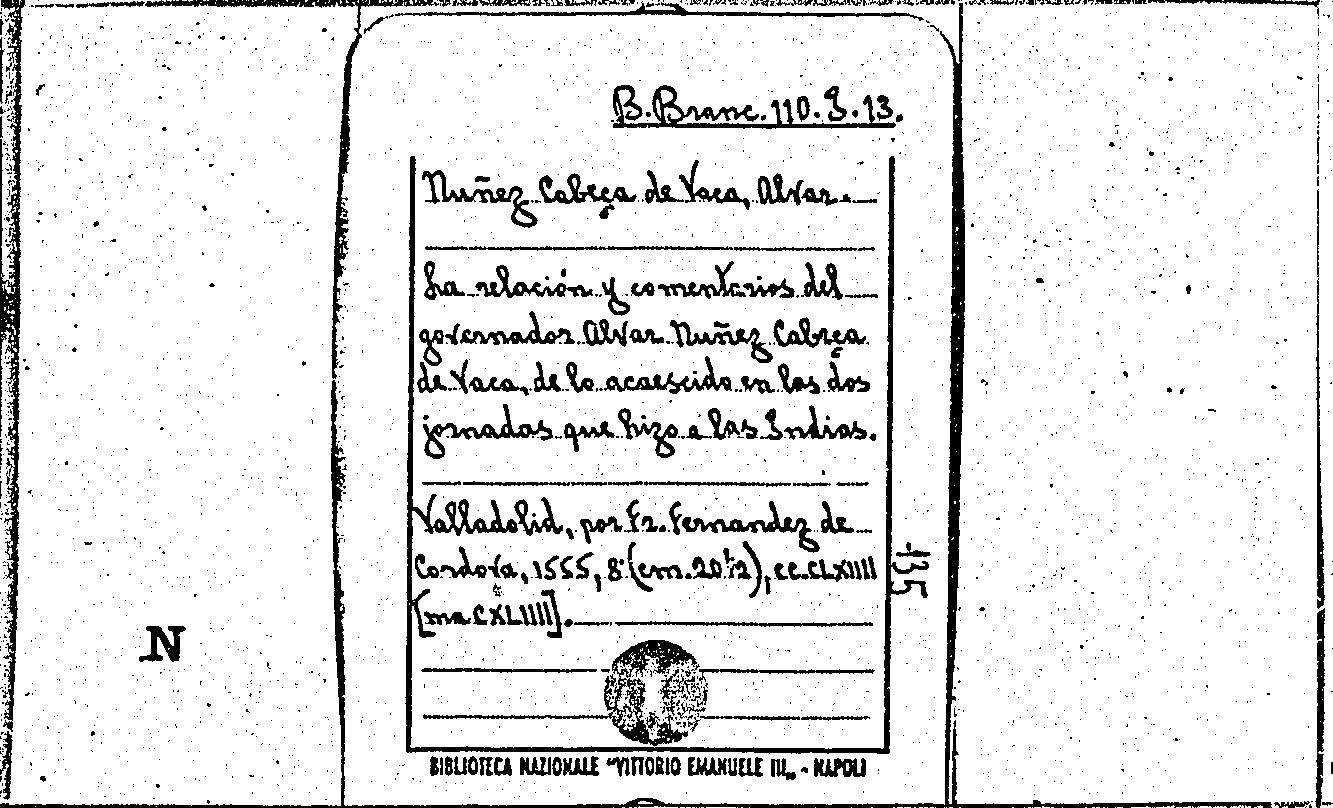 B. Branc. 110. I. 13.
Nuñez Cabeça de Vaca, Alvar.
La relación y comentarios del
governador Alvar Nuñez Cabeça
de Vaca, de lo acaescido en las dos
jornadas que hizo a las Indias.
Valladolid, por Fr. Fernandez de
Cordova, 1555, 8° (cm. 20½), cc. CLXIIII
[ma CXLIIII].
135
N
BIBLIOTECA NAZIONALE "VITTORIO EMANUELE III„ - NAPOLI